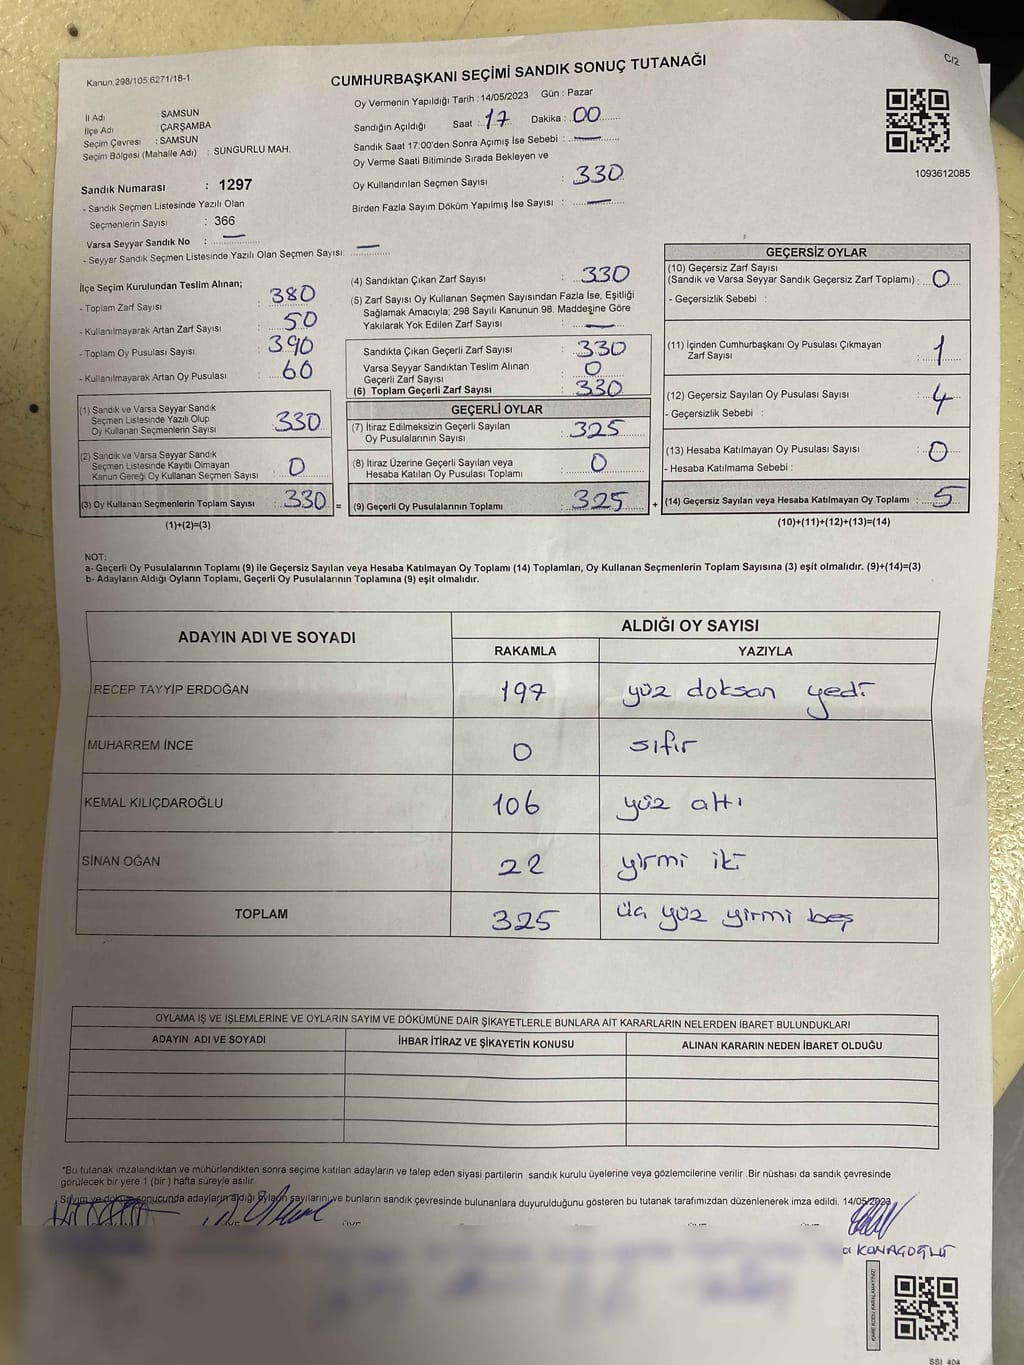 Kanun, 298/105,6271/18-1
C/2
CUMHURBAŞKANI SEÇİMİ SANDIK SONUÇ TUTANAĞI
İl Adı SAMSUN
İlçe Adı ÇARŞAMBA
Seçim Çevresi : SAMSUN
Seçim Bölgesi (Mahalle Adı) : SUNGURLU MAH.
Oy Vermenin Yapıldığı Tarih : 14/05/2023 Gün : Pazar
Sandığın Açıldığı Saat : 17 Dakika : 00
Sandık Saat 17:00'den Sonra Açımış İse Sebebi : —
Oy Verme Saati Bitiminde Sırada Bekleyen ve
Oy Kullandırılan Seçmen Sayısı : 330
Birden Fazla Sayım Döküm Yapılmış İse Sayısı : —
1093612085
Sandık Numarası : 1297
- Sandık Seçmen Listesinde Yazılı Olan
Seçmenlerin Sayısı : 366
Varsa Seyyar Sandık No : —
- Seyyar Sandık Seçmen Listesinde Yazılı Olan Seçmen Sayısı: —
İlçe Seçim Kurulundan Teslim Alınan;
- Toplam Zarf Sayısı : 380
- Kullanılmayarak Artan Zarf Sayısı : 50
- Toplam Oy Pusulası Sayısı : 390
- Kullanılmayarak Artan Oy Pusulası : 60
(1) Sandık ve Varsa Seyyar Sandık
Seçmen Listesinde Yazılı Olup
Oy Kullanan Seçmenlerin Sayısı : 330
(2) Sandık ve Varsa Seyyar Sandık
Seçmen Listesinde Kayıtlı Olmayan
Kanun Gereği Oy Kullanan Seçmen Sayısı : 0
(3) Oy Kullanan Seçmenlerin Toplam Sayısı : 330 =
(1)+(2)=(3)
(4) Sandıktan Çıkan Zarf Sayısı : 330
(5) Zarf Sayısı Oy Kullanan Seçmen Sayısından Fazla İse, Eşitliği
Sağlamak Amacıyla; 298 Sayılı Kanunun 98. Maddesine Göre
Yakılarak Yok Edilen Zarf Sayısı : —
Sandıkta Çıkan Geçerli Zarf Sayısı : 330
Varsa Seyyar Sandıktan Teslim Alınan
Geçerli Zarf Sayısı : 0
(6) Toplam Geçerli Zarf Sayısı : 330
GEÇERLİ OYLAR
(7) İtiraz Edilmeksizin Geçerli Sayılan
Oy Pusulalarının Sayısı : 325
(8) İtiraz Üzerine Geçerli Sayılan veya
Hesaba Katılan Oy Pusulası Toplamı : 0
(9) Geçerli Oy Pusulalarının Toplamı : 325 +
GEÇERSİZ OYLAR
(10) Geçersiz Zarf Sayısı
(Sandık ve Varsa Seyyar Sandık Geçersiz Zarf Toplamı) : 0
- Geçersizlik Sebebi :
(11) İçinden Cumhurbaşkanı Oy Pusulası Çıkmayan
Zarf Sayısı : 1
(12) Geçersiz Sayılan Oy Pusulası Sayısı : 4
- Geçersizlik Sebebi :
(13) Hesaba Katılmayan Oy Pusulası Sayısı : 0
- Hesaba Katılmama Sebebi :
(14) Geçersiz Sayılan veya Hesaba Katılmayan Oy Toplamı : 5
(10)+(11)+(12)+(13)=(14)
NOT:
a- Geçerli Oy Pusulalarının Toplamı (9) ile Geçersiz Sayılan veya Hesaba Katılmayan Oy Toplamı (14) Toplamları, Oy Kullanan Seçmenlerin Toplam Sayısına (3) eşit olmalıdır. (9)+(14)=(3)
b- Adayların Aldığı Oyların Toplamı, Geçerli Oy Pusulalarının Toplamına (9) eşit olmalıdır.
ADAYIN ADI VE SOYADI ALDIĞI OY SAYISI
RAKAMLA YAZIYLA
RECEP TAYYİP ERDOĞAN 197 yüz doksan yedi
MUHARREM İNCE 0 sıfır
KEMAL KILIÇDAROĞLU 106 yüz altı
SİNAN OĞAN 22 yirmi iki
TOPLAM 325 üç yüz yirmi beş
OYLAMA İŞ VE İŞLEMLERİNE VE OYLARIN SAYIM VE DÖKÜMÜNE DAİR ŞİKAYETLERLE BUNLARA AİT KARARLARIN NELERDEN İBARET BULUNDUKLARI
ADAYIN ADI VE SOYADI İHBAR İTİRAZ VE ŞİKAYETİN KONUSU ALINAN KARARIN NEDEN İBARET OLDUĞU
*Bu tutanak imzalandıktan ve mühürlendikten sonra seçime katılan adayların ve talep eden siyasi partilerin sandık kurulu üyelerine veya gözlemcilerine verilir. Bir nüshası da sandık çevresinde
görülecek bir yere 1 (bir) hafta süreyle asılır.
Sayım ve döküm sonucunda adayların aldığı oyların sayılarını ve bunların sandık çevresinde bulunanlara duyurulduğunu gösteren bu tutanak tarafımızdan düzenlenerek imza edildi. 14/05/2023
KONAGOĞLU
SSI_404